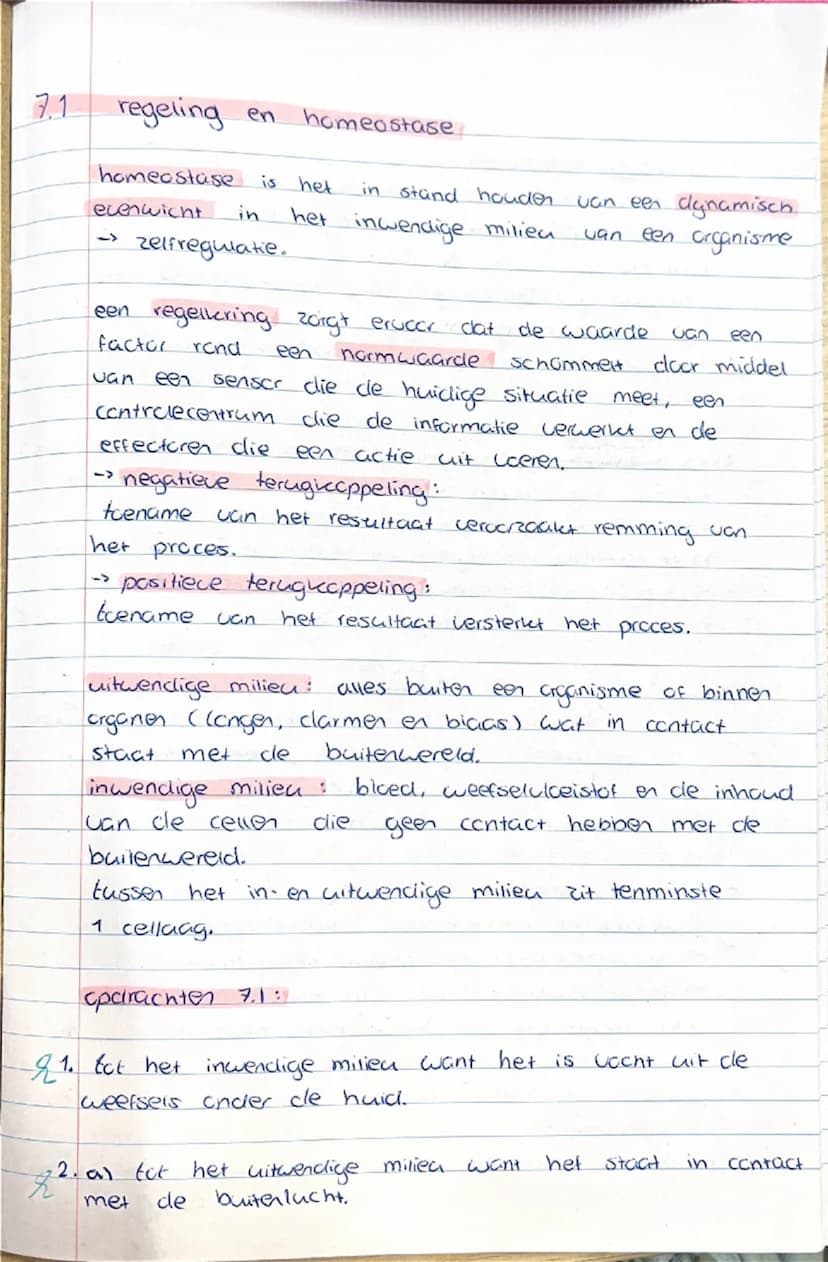 7.1 regeling en homeostase
homeostase is het in stand houden van een dynamisch
evenwicht in het inwendige milieu van een organisme
-> zelfregulatie.
een regelkring zorgt ervoor dat de waarde van een
factor rond een normwaarde schommelt door middel
van een sensor die de huidige situatie meet, een
controlecentrum die de informatie verwerkt en de
effectoren die een actie uit voeren.
-> negatieve terugkoppeling:
toename van het resultaat veroorzaakt remming van
het proces.
-> positieve terugkoppeling:
toename van het resultaat versterkt het proces.
uitwendige milieu: alles buiten een organisme of binnen
organen (longen, darmen en blaas) wat in contact
staat met de buitenwereld.
inwendige milieu: bloed, weefselvloeistof en de inhoud
van de cellen die geen contact hebben met de
buitenwereld.
tussen het in- en uitwendige milieu zit tenminste
1 cellaag.
opdrachten 7.1:
1. tot het inwendige milieu want het is vocht uit de
weefsels onder de huid.
2. a) tot het uitwendige milieu want het staat in contact
met de buitenlucht.